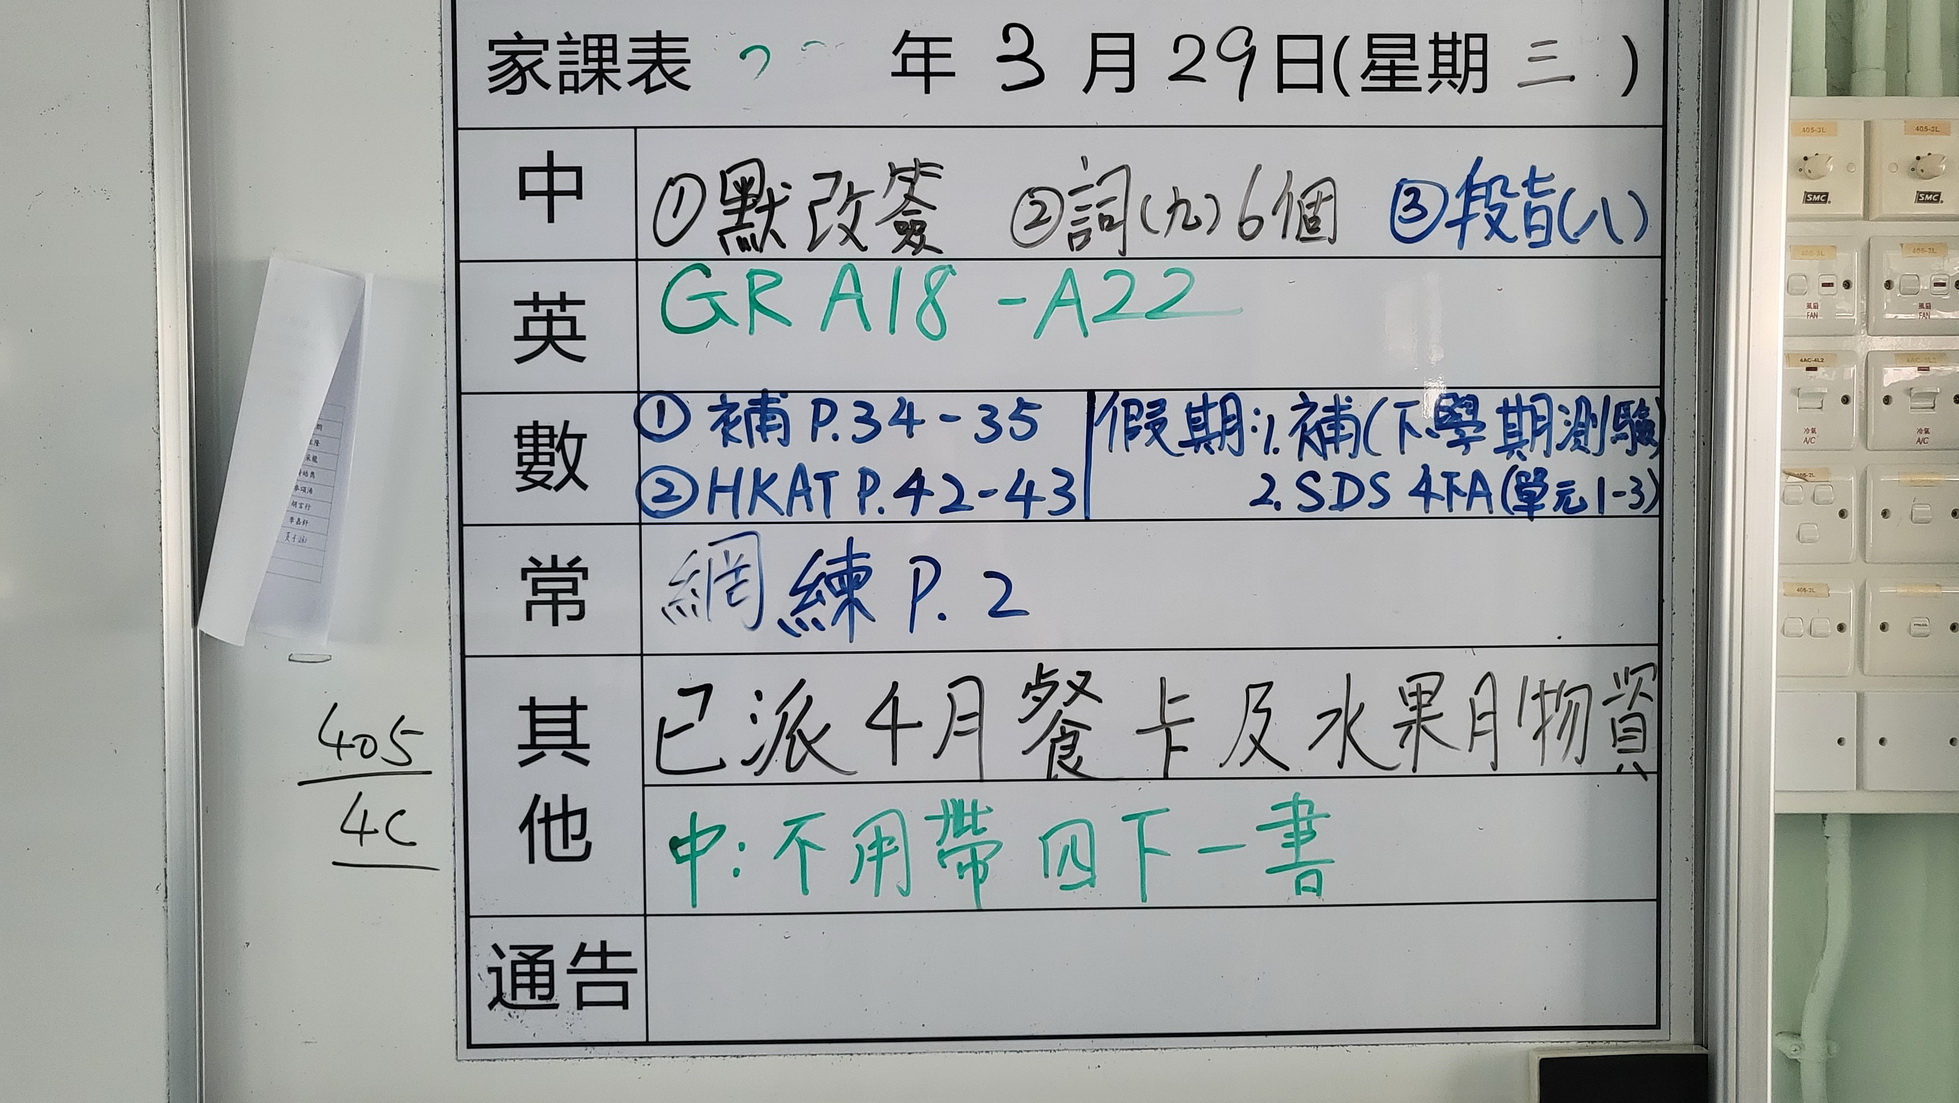 家課表 年 3 月 29 日(星期 三 )
中 ①默改簽 ②詞(九)6個 ③段旨(八)
英 GR A18 - A22
數 ① 補 P.34 - 35 假期: 1. 補(下學期測驗)
② HKAT P.42-43 2. SDS 4下A(單元1-3)
常 網練 P. 2
其他 已派4月餐卡及水果月物資
中:不用帶四下一書
通告
405
4C
405-2L
SMC
SMC
風扇
FAN
風扇
FAN
4AC-4L2
冷氣
A/C
冷氣
A/C